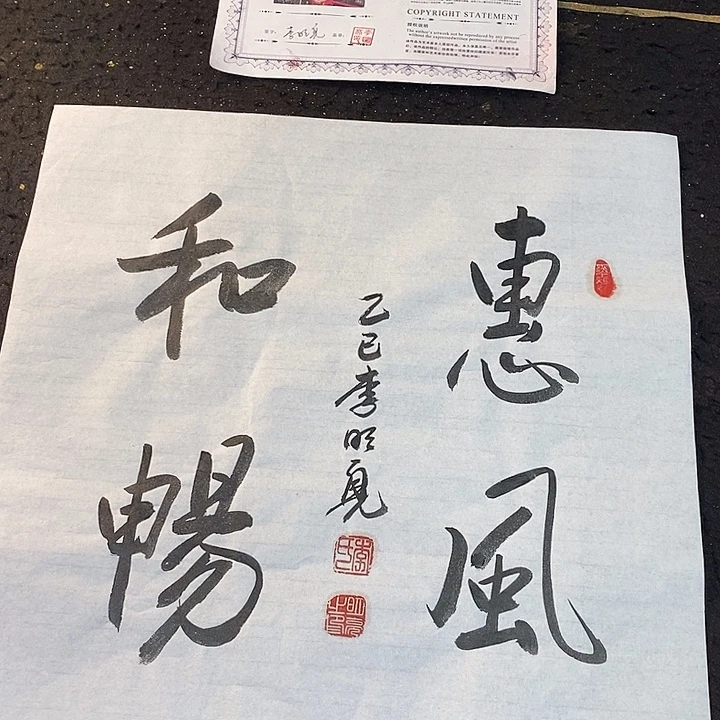 惠風
和暢
乙巳李明亮
COPYRIGHT STATEMENT
授权说明
The author's artwork not be reproduced by any process
without the expressed written permission of the artist
签字:李明亮 盖章: